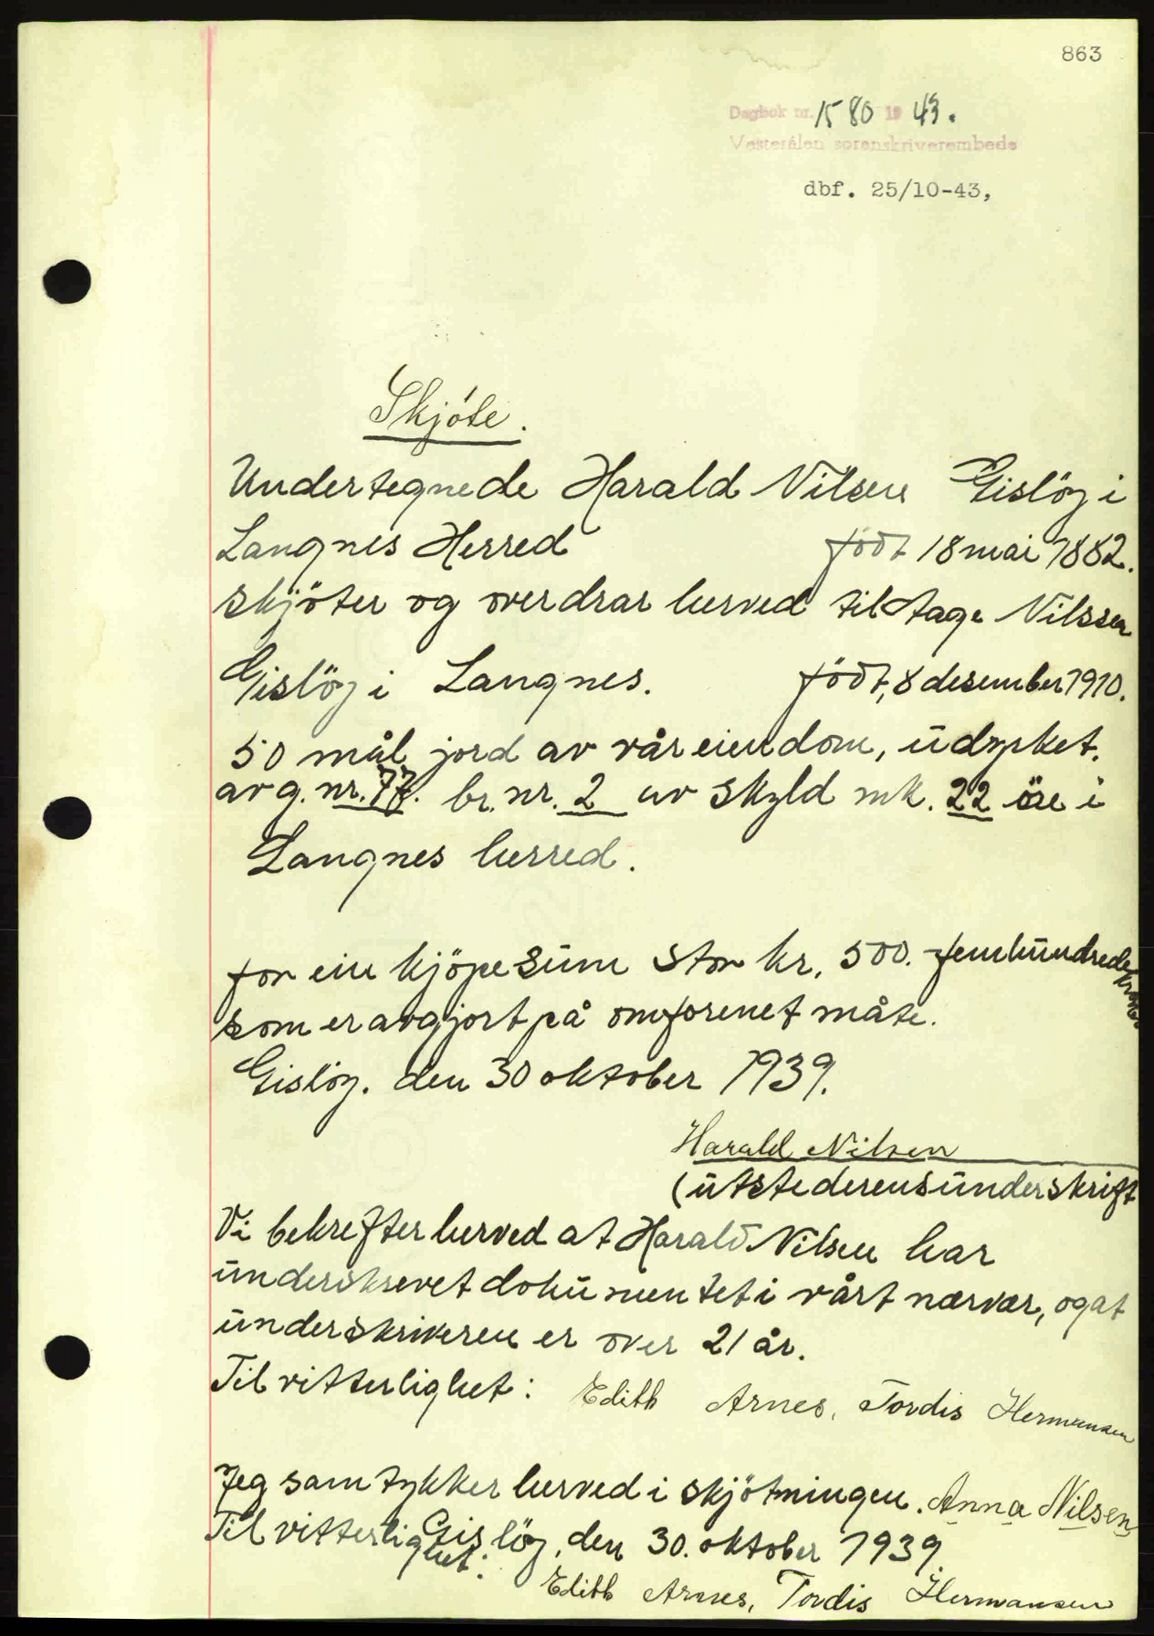 863
Dagbok nr. 1580 19 43.
Vesterålen sorenskriverembede
dbf. 25/10-43,
Skjöte.
Undertegnede Harald Nilsen Gislöy i
Langnes Herred født 18 mai 1882.
skjöter og overdrar herved til Aage Nilssen
Gislöy i Langnes. født, 8 desember 1910.
50 mål jord av vår eiendom, udyrket.
av g. nr. 77. br. nr. 2 av skyld mk. 22 öre i
Langnes herred.
for ein kjöpesum stor kr. 500. femhundrede kroner
som er avgjort på omforenet måte.
Gislöy. den 30 oktober 1939.
Harald Nilsen
(utstederens underskrift
Vi bekrefter herved at Harald Nilsen har
underskrevet dokumentet i vårt nærvær, og at
underskriveren er over 21 år.
Til vitterlighet: Edith Arnes, Tordis Hermansen
Jeg samtykker herved i skjötningen. Anna Nilsen
Gislöy, den 30. oktober 1939.
Til vitterlighet: Edith Arnes, Tordis Hermansen